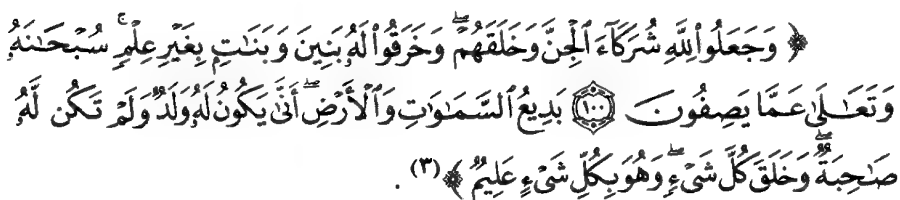 ﴿ وَجَعَلُوا۟ لِلَّهِ شُرَكَآءَ ٱلْجِنَّ وَخَلَقَهُمْ ۖ وَخَرَقُوا۟ لَهُۥ بَنِينَ وَبَنَـٰتٍۭ بِغَيْرِ عِلْمٍ ۚ سُبْحَـٰنَهُۥ
وَتَعَـٰلَىٰ عَمَّا يَصِفُونَ ۝١٠٠ بَدِيعُ ٱلسَّمَـٰوَٰتِ وَٱلْأَرْضِ ۖ أَنَّىٰ يَكُونُ لَهُۥ وَلَدٌ وَلَمْ تَكُن لَّهُۥ
صَـٰحِبَةٌ ۖ وَخَلَقَ كُلَّ شَىْءٍ ۖ وَهُوَ بِكُلِّ شَىْءٍ عَلِيمٌ ﴾ (٣) .